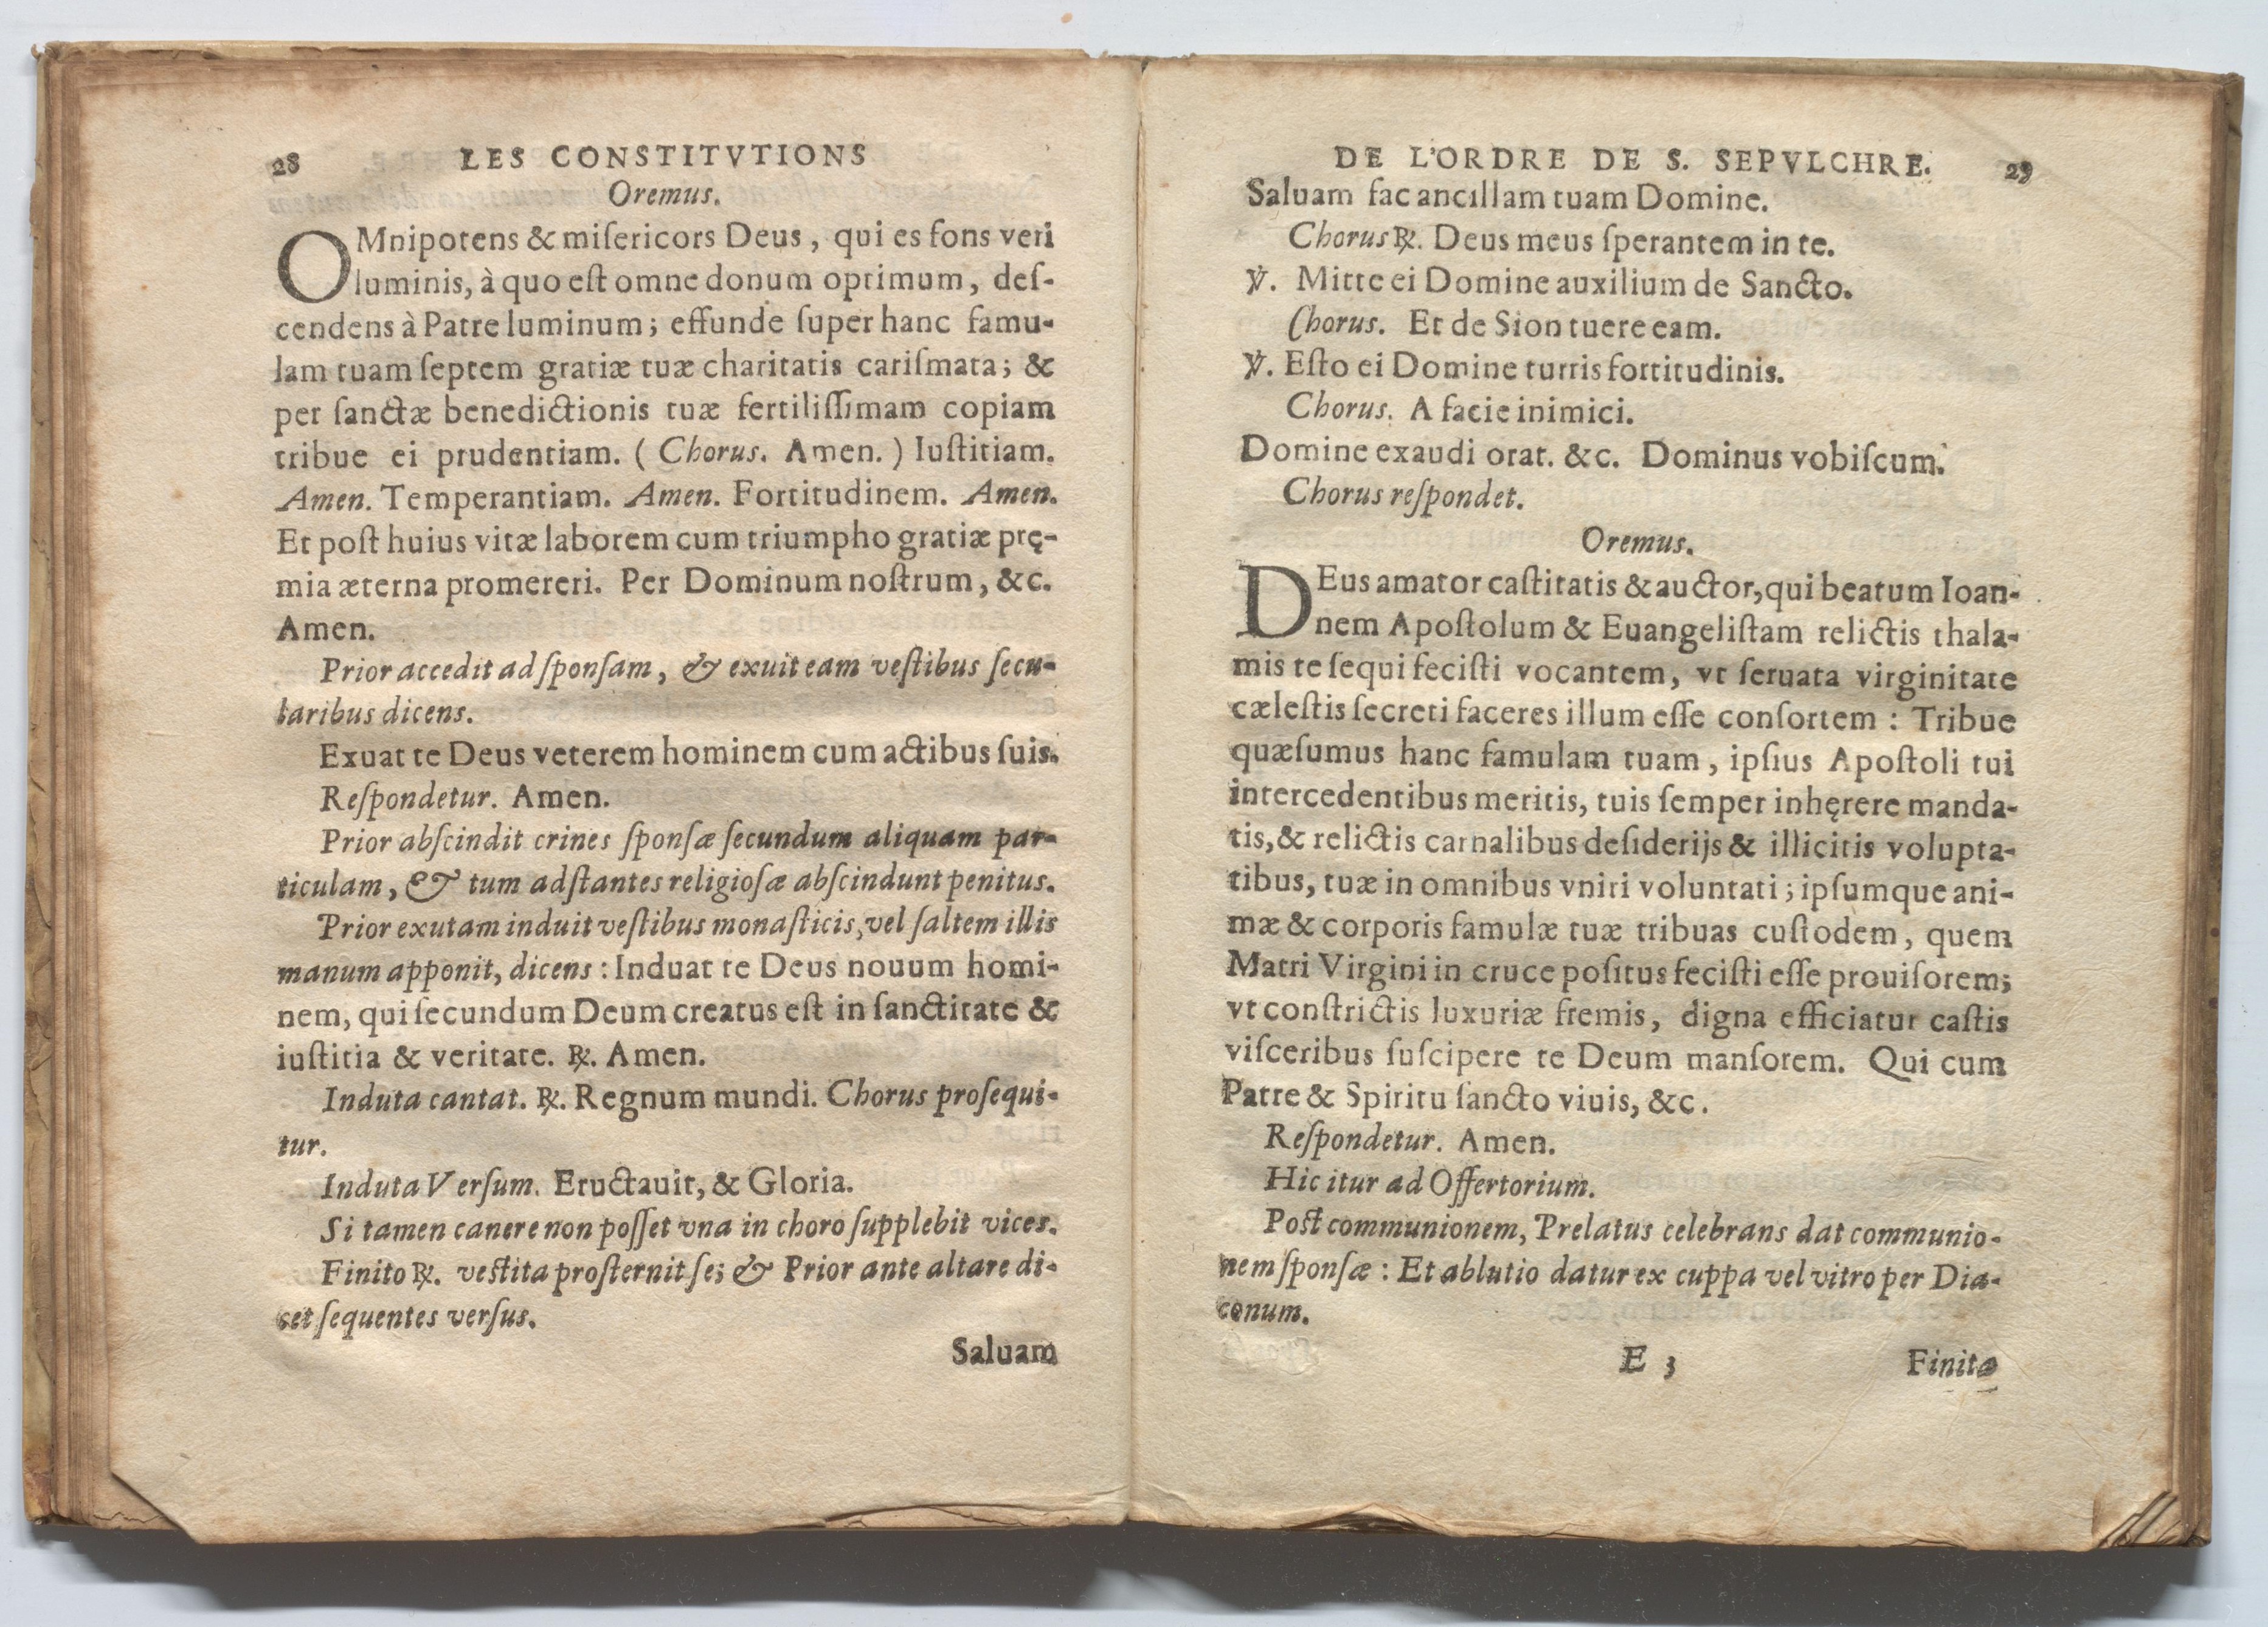 28 LES CONSTITVTIONS
Oremus.
OMnipotens & miſericors Deus, qui es fons veri
luminis, à quo eſt omne donum optimum, deſ-
cendens à Patre luminum; effunde ſuper hanc famu-
lam tuam ſeptem gratiæ tuæ charitatis cariſmata; &
per ſanctæ benedictionis tuæ fertiliſſimam copiam
tribue ei prudentiam. (Chorus. Amen.) Iuſtitiam.
Amen. Temperantiam. Amen. Fortitudinem. Amen.
Et poſt huius vitæ laborem cum triumpho gratiæ prę-
mia æterna promereri. Per Dominum noſtrum, &c.
Amen.
Prior accedit ad ſponſam, & exuit eam veſtibus ſecu-
laribus dicens.
Exuat te Deus veterem hominem cum actibus ſuis.
Reſpondetur. Amen.
Prior abſcindit crines ſponſæ ſecundum aliquam par-
ticulam, & tum adſtantes religioſæ abſcindunt penitus.
Prior exutam induit veſtibus monaſticis, vel ſaltem illis
manum apponit, dicens: Induat te Deus nouum homi-
nem, qui ſecundum Deum creatus eſt in ſanctitate &
iuſtitia & veritate. ℟. Amen.
Induta cantat. ℟. Regnum mundi. Chorus proſequi-
tur.
Induta Verſum. Eructauit, & Gloria.
Si tamen canere non poſſet vna in choro ſupplebit vices.
Finito ℟. veſtita proſternit ſe; & Prior ante altare di-
cet ſequentes verſus.
Saluam
DE L'ORDRE DE S. SEPVLCHRE. 29
Saluam fac ancillam tuam Domine.
Chorus ℟. Deus meus ſperantem in te.
℣. Mitte ei Domine auxilium de Sancto.
Chorus. Et de Sion tuere eam.
℣. Eſto ei Domine turris fortitudinis.
Chorus. A facie inimici.
Domine exaudi orat. &c. Dominus vobiſcum.
Chorus reſpondet.
Oremus.
DEus amator caſtitatis & auctor, qui beatum Ioan-
nem Apoſtolum & Euangeliſtam relictis thala-
mis te ſequi feciſti vocantem, vt ſeruata virginitate
cæleſtis ſecreti faceres illum eſſe conſortem: Tribue
quæſumus hanc famulam tuam, ipſius Apoſtoli tui
intercedentibus meritis, tuis ſemper inhęrere manda-
tis, & relictis carnalibus deſiderijs & illicitis volupta-
tibus, tuæ in omnibus vniri voluntati; ipſumque ani-
mæ & corporis famulæ tuæ tribuas cuſtodem, quem
Matri Virgini in cruce poſitus feciſti eſſe prouiſorem;
vt conſtrictis luxuriæ fremis, digna efficiatur caſtis
viſceribus ſuſcipere te Deum manſorem. Qui cum
Patre & Spiritu ſancto viuis, &c.
Reſpondetur. Amen.
Hic itur ad Offertorium.
Poſt communionem, Prelatus celebrans dat communio-
nem ſponſæ: Et ablutio datur ex cuppa vel vitro per Dia-
conum.
E 3 Finita